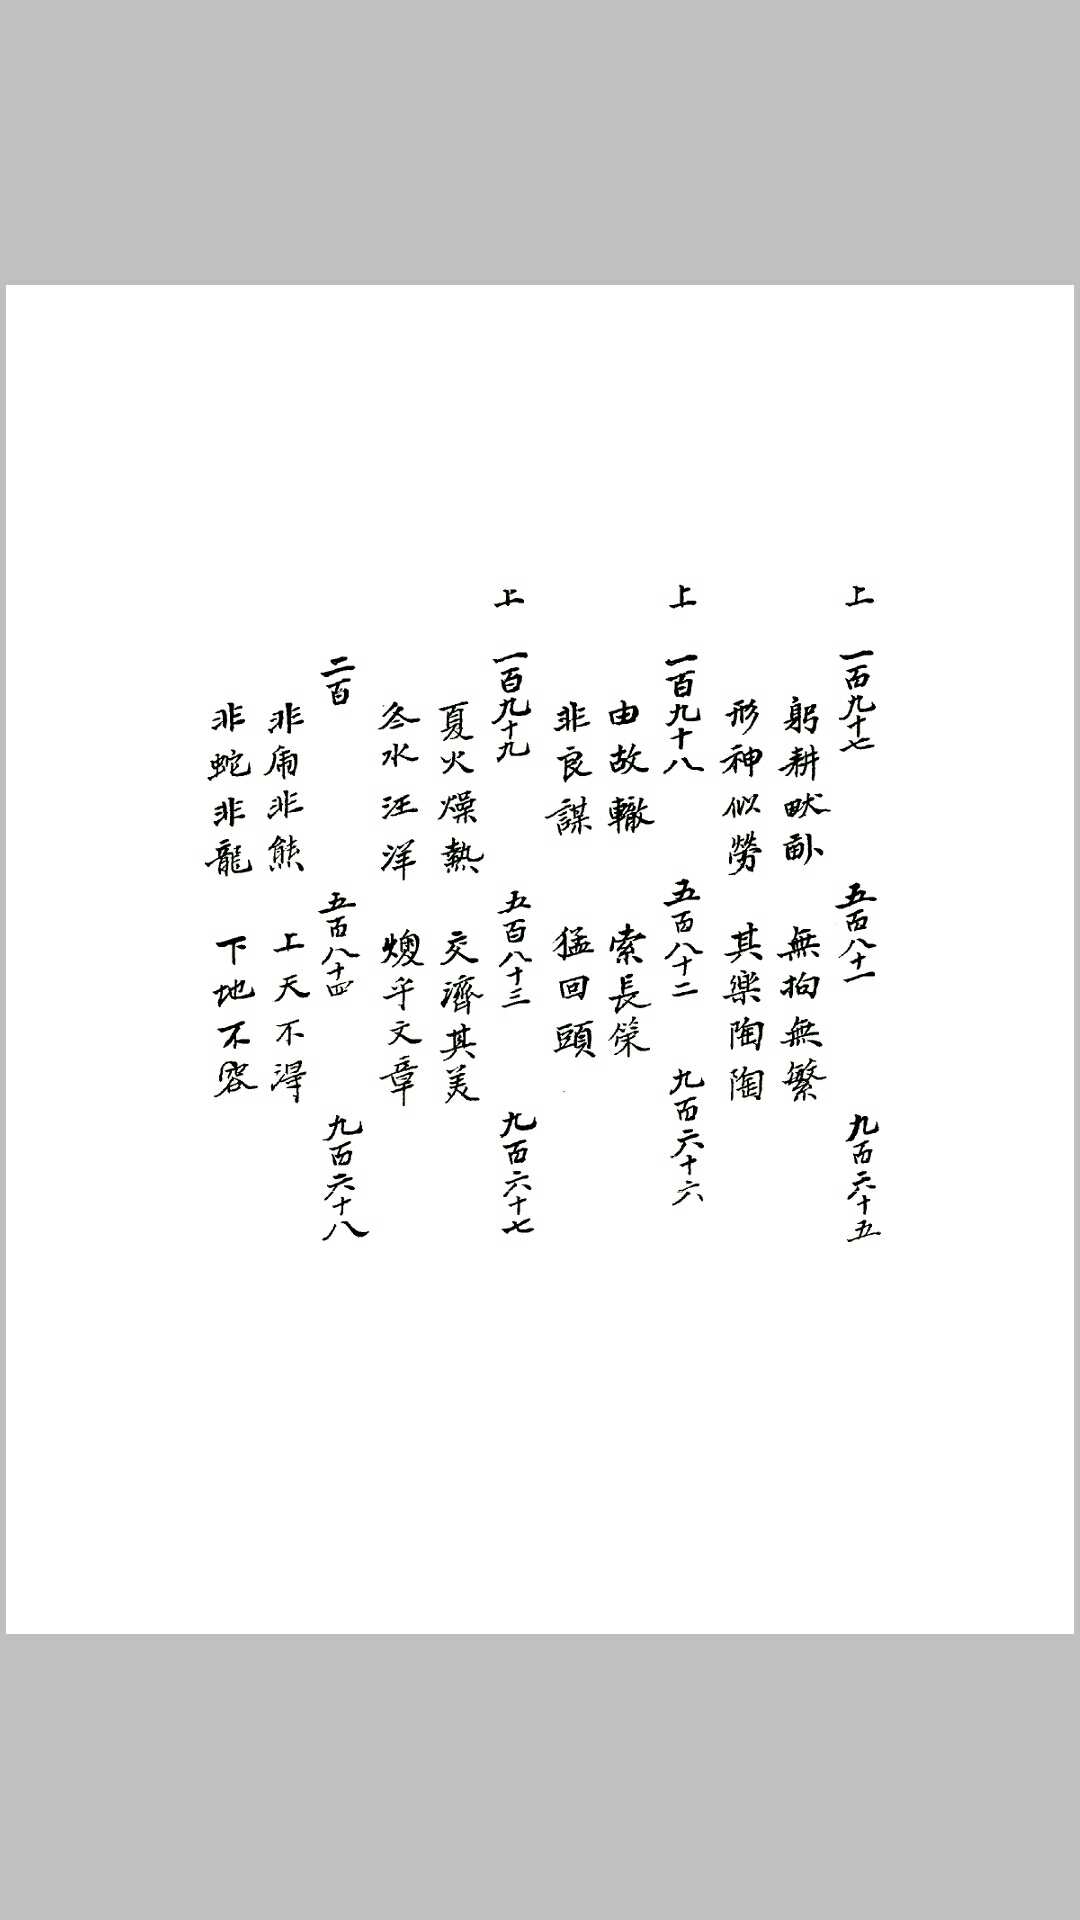 上 一百九十七 五百八十一 九百六十五
躬耕畎畝 無拘無繁
形神似勞 其樂陶陶
上 一百九十八 五百八十二 九百六十六
由故轍 索長策
非良謀 猛回頭
上 一百九十九 五百八十三 九百六十七
夏火燥熱 交濟其美
冬水汪洋 燠乎文章
二百 五百八十四 九百六十八
非虎非熊 上天不得
非蛇非龍 下地不容